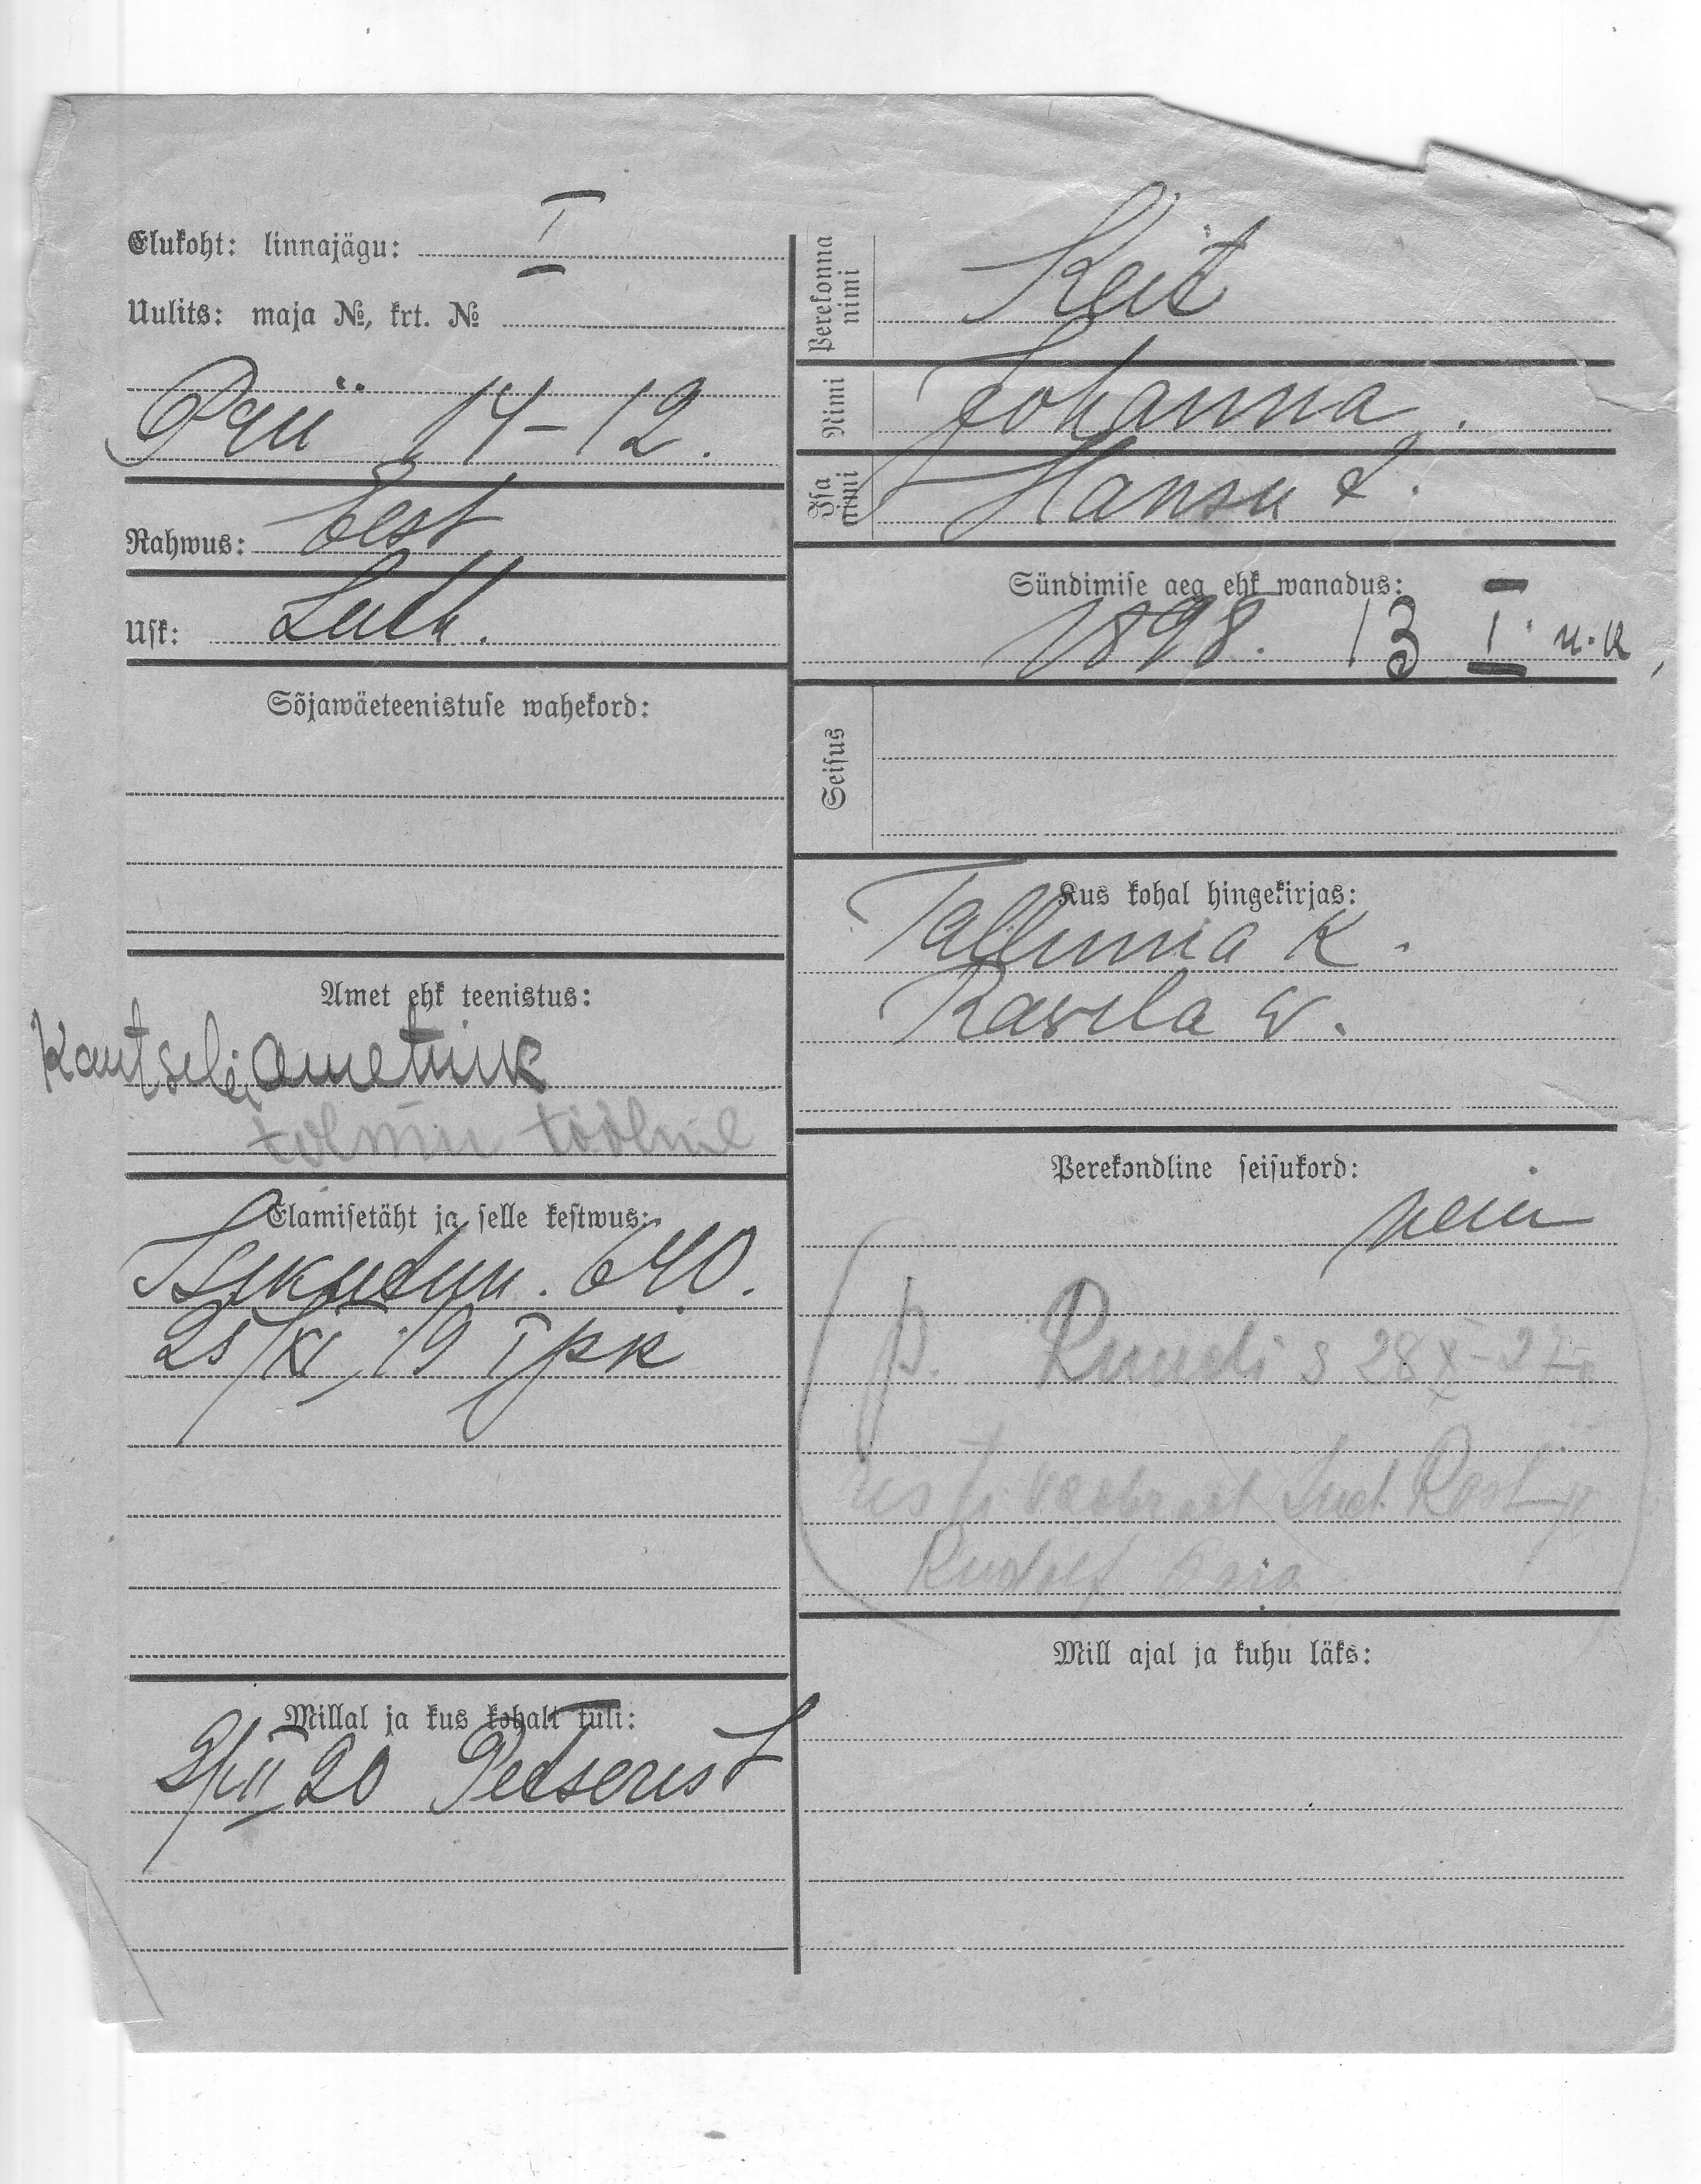 Elukoht: linnajägu: I
Uulits: maja №, krt. №
14-12.
Rahwus: Eest
Usk: Luth.
Sõjawäeteenistuse wahekord:
Amet ehk teenistus:
Kantseleiametnik
tööline
Elamisetäht ja selle kestwus:
Isikutun. 640.
25/XI 19 I jpk
Millal ja kus kohalt tuli:
2/II 20 Petserist
Perekonna nimi
Keit
Nimi
Johanna.
Isa nimi
Hansu t.
Sündimise aeg ehk wanadus:
1898. 13 I. u.k,
Seisus
Kus kohal hingekirjas:
Tallinna K.
Rawila W.
Perekondline seisukord:
neiu
p. Ruudi s 28 X-27
Rudolf
Mill ajal ja kuhu läks: